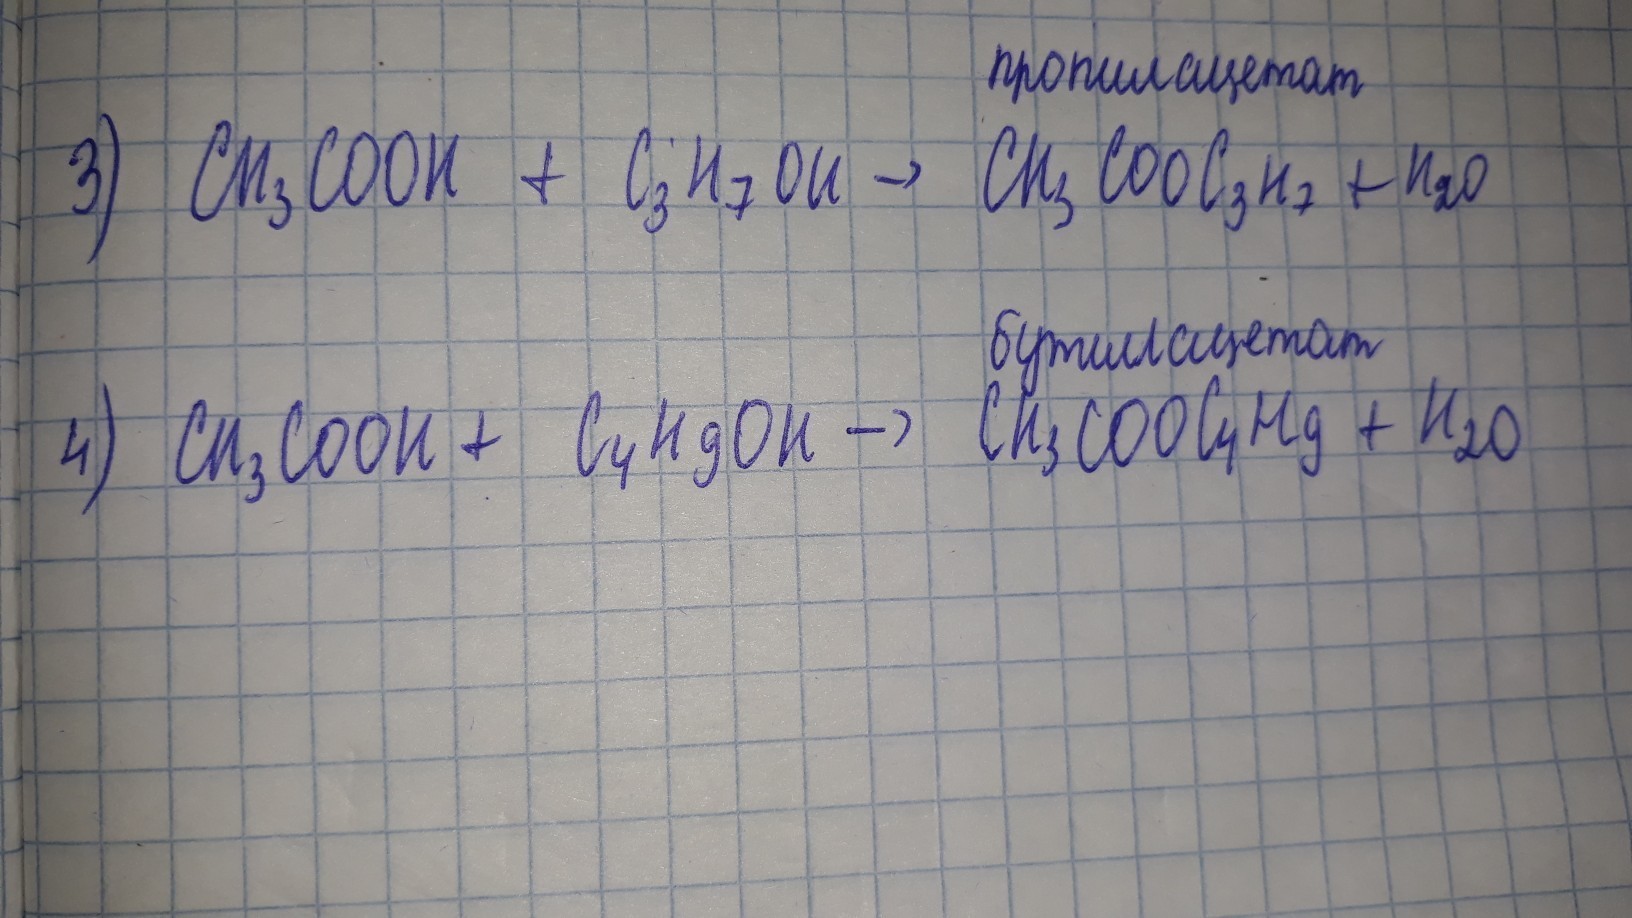 пропилацетат
3) CH₃COOH + C₃H₇OH → CH₃COOC₃H₇ + H₂O
бутилацетат
4) CH₃COOH + C₄H₉OH → CH₃COOC₄H₉ + H₂O